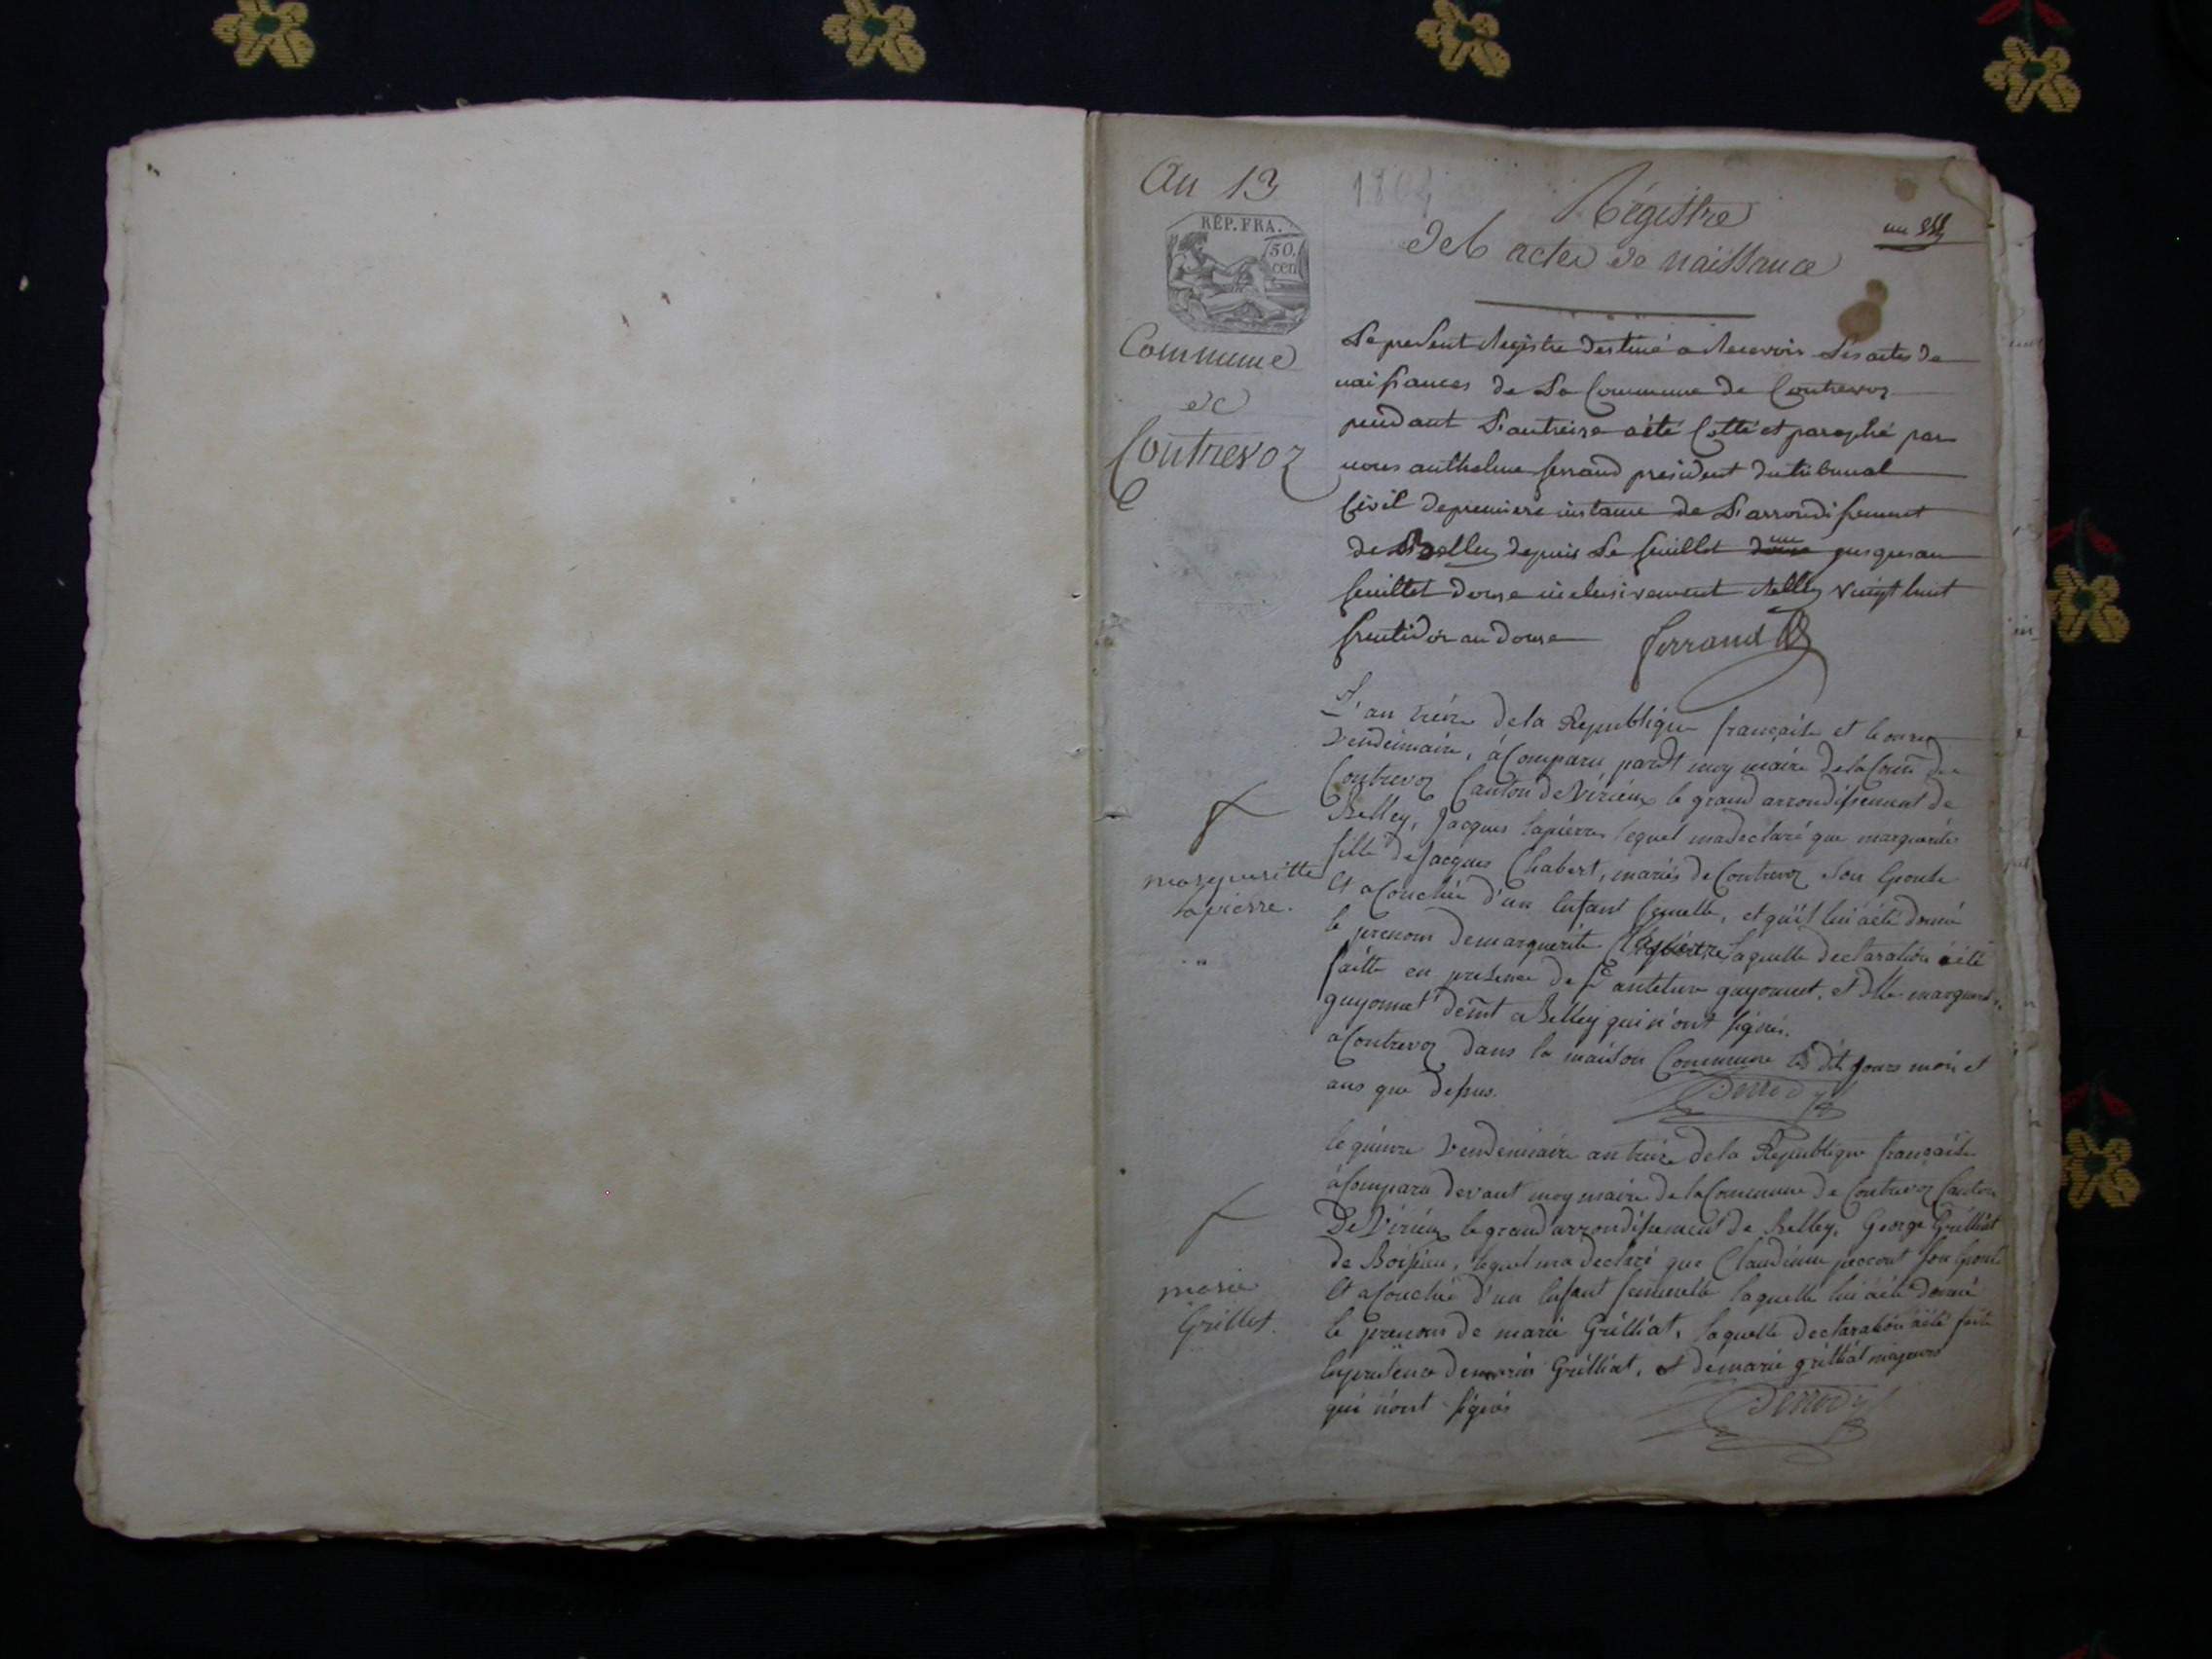 An 13
1804
Régistre
des actes de naissance
un
RÉP. FRA.
50.
cen
Commune
de
Contrevoz
Le present Registre destiné a Recevoir Les actes de
naissances de La Commune de Contrevoz
pendant L'an treize a été Cotté et paraphé par
nous anthelme ferrand président du tribunal
Civil de premiere instance de L'arrondissement
de Belley depuis Le feuillet un jusques au
feuillet douse inclusivement Belley vingt huit
fructidor an douse ferrand
L'an treize de la Republique française et le onze
vendemiaire, à Comparu pard^t moy maire de la Com̃e de
Contrevoz Canton de Virieux le grand arrondissement de
Belley, Jacques lapierre lequel ma declaré que marguerite
fille de Jacques Chabert, mariés de Contrevoz Son Epouse
Et acouchée d'un Enfant femelle, et qu'il lui a été donné
le prenom de marguerite lapierre laquelle declaration a été
faitte en presence de S^r antelme guyonnet, et dlle marguerite
guyonnet dem̃t a Belley qui n'ont signés.
a Contrevoz dans la maison Commune les dit jours mois et
ans que dessus.
margueritte
lapierre.
le quinze vendemiaire an treize de la Republique française
à Comparu devant moy maire de la Commune de Contrevoz Canton
De Virieux le grand arrondissement de Belley, George Grilliat
de Boissieu, lequel ma declaré que Claudinne son Epouse
Et acouchée d'un Enfant femmelle laquelle lui a été donné
le prenom de marie Grilliat, laquelle declaration a été faite
En presence de Grilliat, et de marie grilliat majeurs
qui n'ont signés
marie
Grillet.